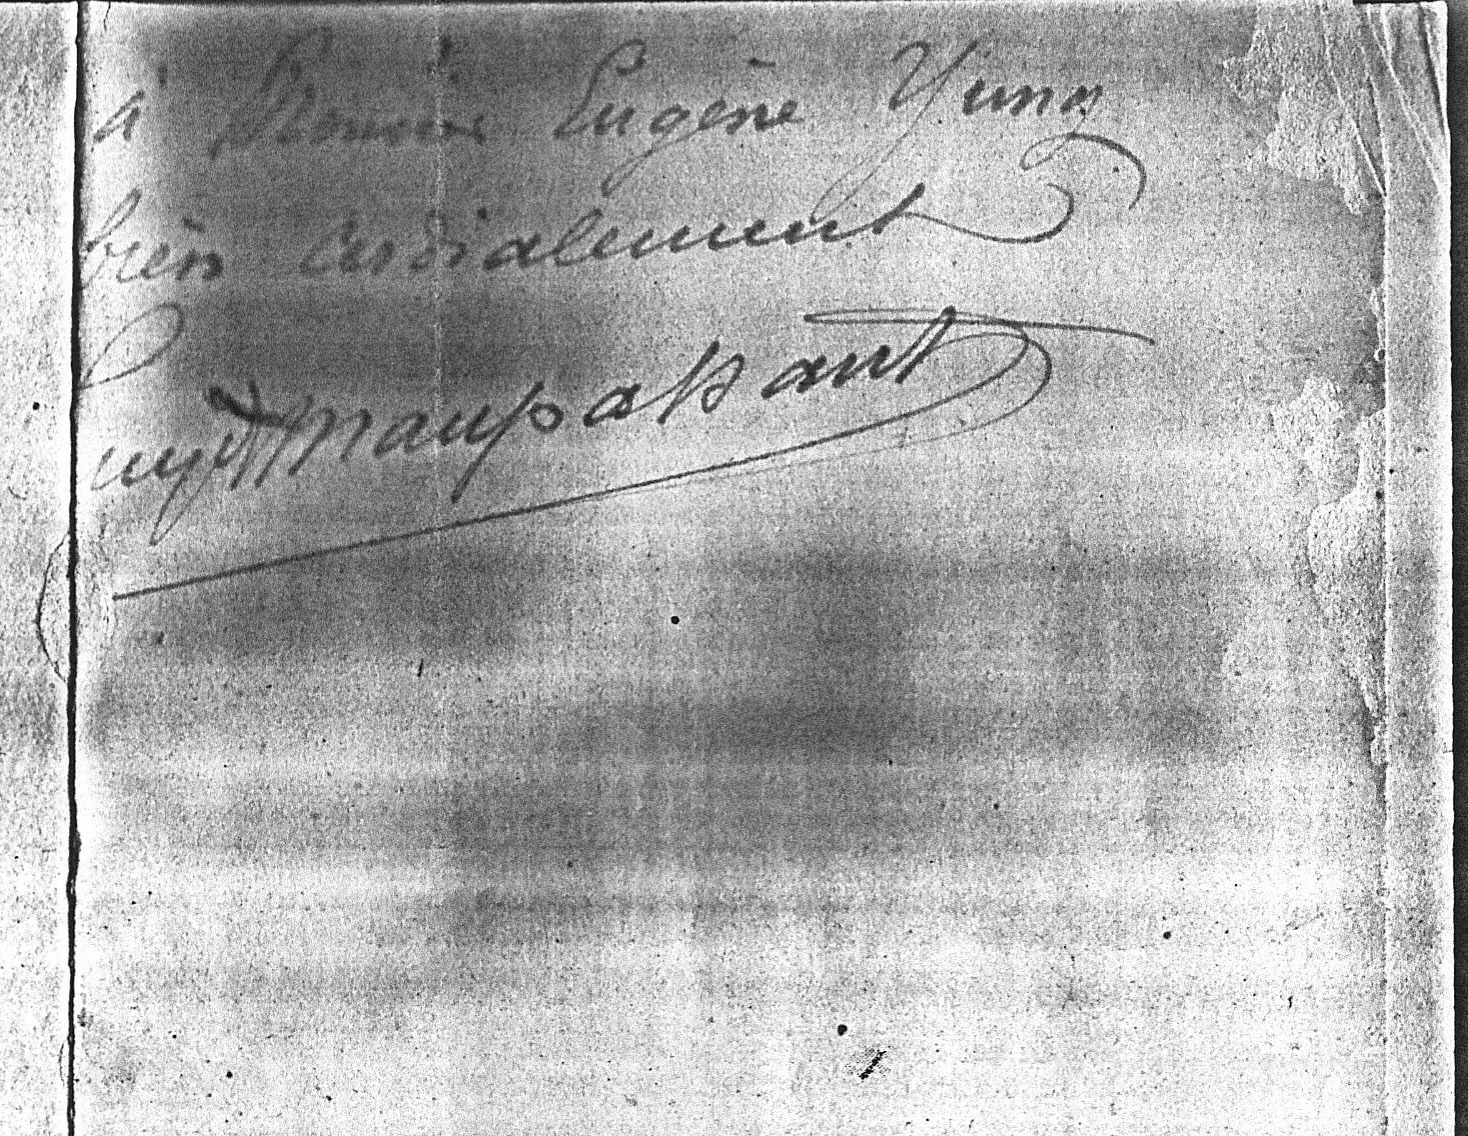 à Monsieur Eugène Yung
bien cordialement
Guy de Maupassant